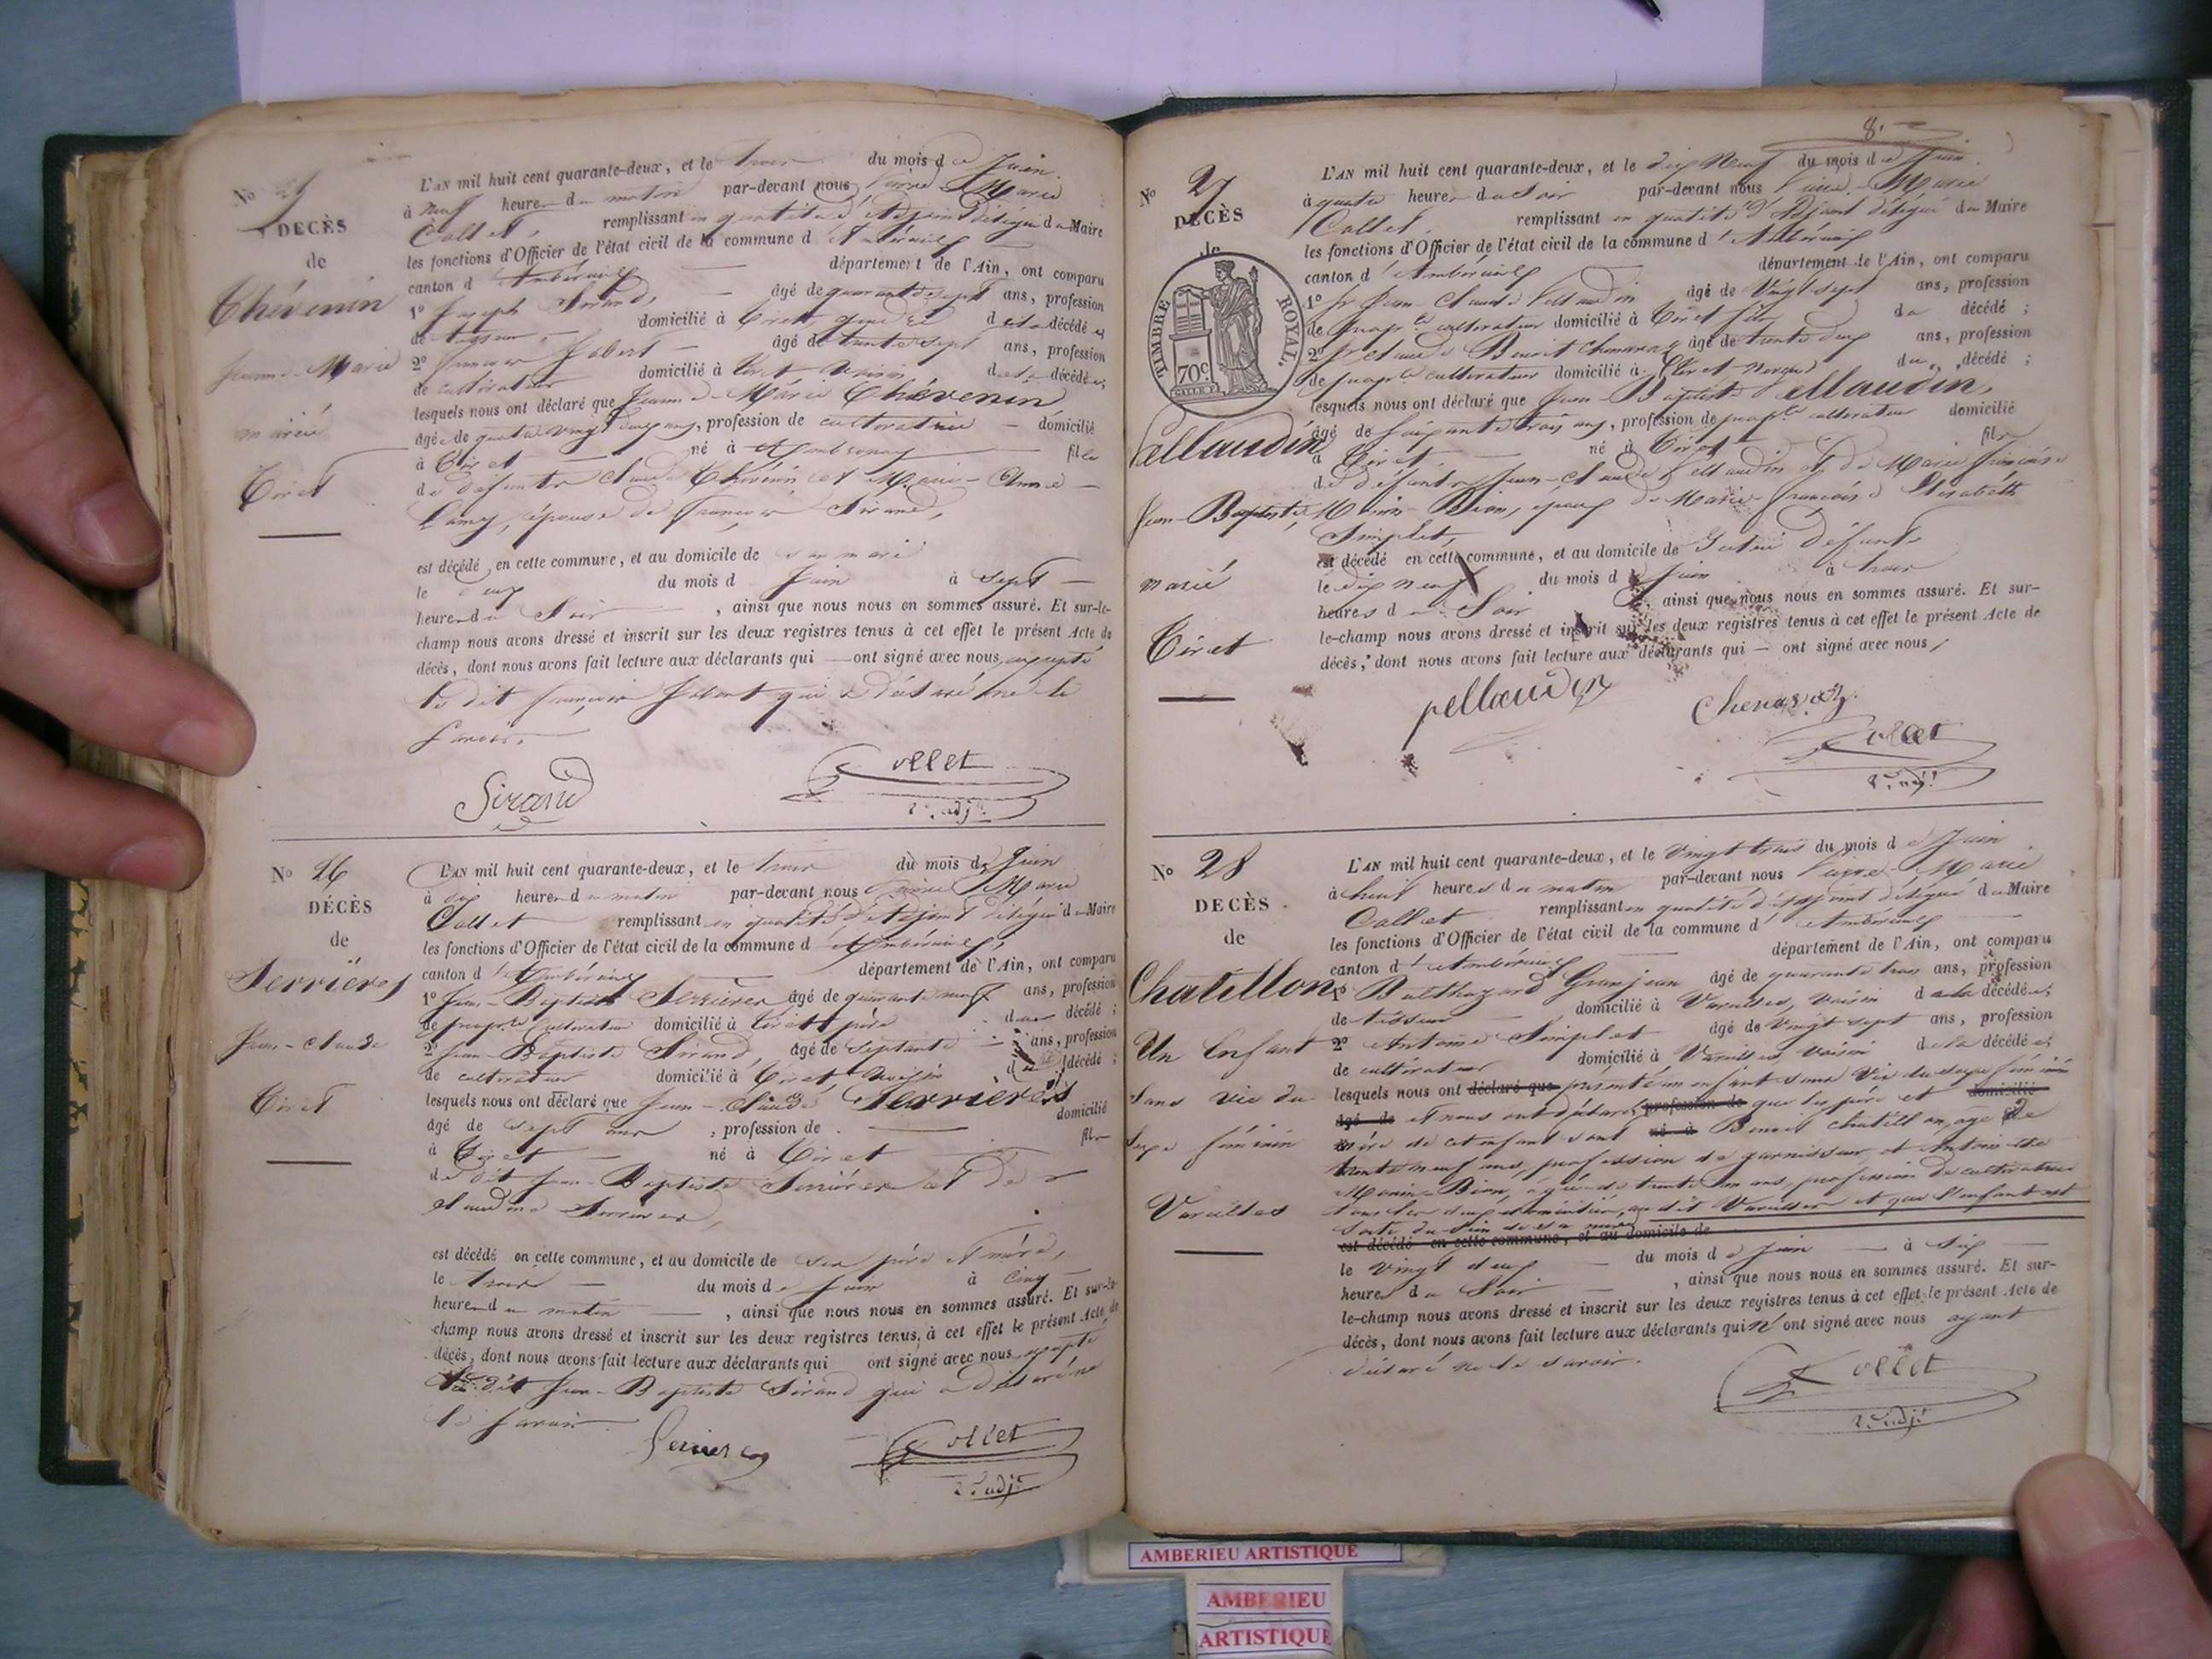 No 25
DÉCÈS
de
Chévenin
Jeanne-Marie
mariée
Tiret
L'AN mil huit cent quarante-deux, et le trois du mois de Juin
à neuf heures du matin par-devant nous Pierre-Marie
Collet, remplissant en qualité d'Adjoint délégué du Maire
les fonctions d'Officier de l'état civil de la commune d'Ambérieux
canton d'Ambérieux département de l'Ain, ont comparu
1o Joseph Sirand, âgé de quarante sept ans, profession
de tisseur, domicilié à Tiret, de la décédée,
2o François Jobert âgé de trente sept ans, profession
de cultivateur domicilié à Tiret voisin de la décédée,
lesquels nous ont déclaré que Jeanne-Marie Chévenin
âgée de quatre vingt deux ans, profession de cultivatrice domicilié
à Tiret né à Ambronay fille
de défunts Claude Chévenin et Marie-Anne
Lamy, épouse de François Sirand,
est décédé, en cette commune, et au domicile de son mari
le deux du mois d Juin à sept
heures du Soir, ainsi que nous nous en sommes assuré. Et sur-le-
champ nous avons dressé et inscrit sur les deux registres tenus à cet effet le présent Acte de
décès, dont nous avons fait lecture aux déclarants qui ont signé avec nous, excepté
le dit François Jobert qui a déclaré ne le
savoir.
Sirand
Collet
2e adjt
No 26
DÉCÈS
de
Serrières
Jean-Claude
Tiret
L'AN mil huit cent quarante-deux, et le trois du mois de Juin
à dix heures du matin par-devant nous Pierre Marie
Collet remplissant en qualité d'Adjoint délégué du Maire
les fonctions d'Officier de l'état civil de la commune d'Ambérieux,
canton d'Ambérieux département de l'Ain, ont comparu
1o Jean-Baptiste Serrières âgé de quarante neuf ans, profession
de propre cultivateur domicilié à Tiret père du décédé ;
2o Jean-Baptiste Sirand, âgé de septante ans, profession
de cultivateur domicilié à Tiret, voisin du décédé ;
lesquels nous ont déclaré que Jean-Claude Serrières
âgé de sept ans, profession de domicilié
à Tiret né à Tiret fils
du dit Jean-Baptiste Serrières et de
Claudine Serrières,
est décédé en cette commune, et au domicile de ses père et mère,
le trois du mois de Juin à cinq
heures du matin, ainsi que nous nous en sommes assuré. Et sur-le-
champ nous avons dressé et inscrit sur les deux registres tenus, à cet effet le présent Acte de
décès, dont nous avons fait lecture aux déclarants qui ont signé avec nous excepté
le dit Jean-Baptiste Sirand qui a déclaré ne
le savoir.
Serrieres
Collet
2e adjt
8.
No 27
DÉCÈS
de
TIMBRE ROYAL.
70c
Pellaudin
Jean-Baptiste
marié
Tiret
L'AN mil huit cent quarante-deux, et le dix neuf du mois de Juin
à quatre heures du Soir par-devant nous Pierre-Marie
Collet, remplissant en qualité d'Adjoint délégué du Maire
les fonctions d'Officier de l'état civil de la commune d'Ambérieux
canton d'Ambérieux département de l'Ain, ont comparu
1o Sr Jean-Claude Pellaudin âgé de vingt sept ans, profession
de propre cultivateur domicilié à Tiret fils du décédé ;
2o Sr Claude Benoit Chenavaz âgé de trente deux ans, profession
de propre cultivateur domicilié à Tiret neveu du décédé ;
lesquels nous ont déclaré que Jean-Baptiste Pellaudin,
âgé de soixante trois ans, profession de propre cultivateur domicilié
à Tiret né à Tiret fils
de défunts Jean-Claude Pellaudin et de Marie Françoise
Monin-Bion, époux de Marie-Françoise Elisabeth
Simplet,
est décédé en cette commune, et au domicile de lui défunt
le dix neuf du mois de Juin à trois
heures du Soir, ainsi que nous nous en sommes assuré. Et sur-
le-champ nous avons dressé et inscrit sur les deux registres tenus à cet effet le présent Acte de
décès, dont nous avons fait lecture aux déclarants qui ont signé avec nous,
pellaudin
Chenavaz
Collet
2e adjt
No 28
DÉCÈS
de
Chatillon
Un Enfant
Sans vie du
Sexe féminin
Vareilles
L'AN mil huit cent quarante-deux, et le vingt trois du mois de Juin
à heures du matin par-devant nous Pierre-Marie
Collet remplissant en qualité d'adjoint délégué du Maire
les fonctions d'Officier de l'état civil de la commune d'Ambérieux
canton d'Ambérieux département de l'Ain, ont comparu
1o Balthazard Granjean âgé de quarante trois ans, profession
de tisseur domicilié à Vareilles, voisin de la décédée,
2o Antoine Simplet âgé de vingt sept ans, profession
de cultivateur domicilié à Vareilles, voisin de la décédée,
lesquels nous ont déclaré que présenté un enfant sans vie du sexe féminin
âgé de et nous ont déclaré profession de que les père et domicilié
mère de cet enfant sont né à Benoit Chatillon, âgé de
trente neuf ans, profession de garnisseur et Antoinette
Monin-Bion, âgée de trente un ans, profession de cultivatrice
tous les deux domiciliés au dit Vareilles et que l'enfant est
sorti du sein de sa mère
est décédé en cette commune, et au domicile de
le vingt deux du mois de Juin à six
heures du Soir, ainsi que nous nous en sommes assuré. Et sur-
le-champ nous avons dressé et inscrit sur les deux registres tenus à cet effet le présent Acte de
décès, dont nous avons fait lecture aux déclarants qui n'ont signé avec nous ayant
déclaré ne le savoir.
Collet
2e adjt
AMBERIEU ARTISTIQUE
AMBERIEU
ARTISTIQUE